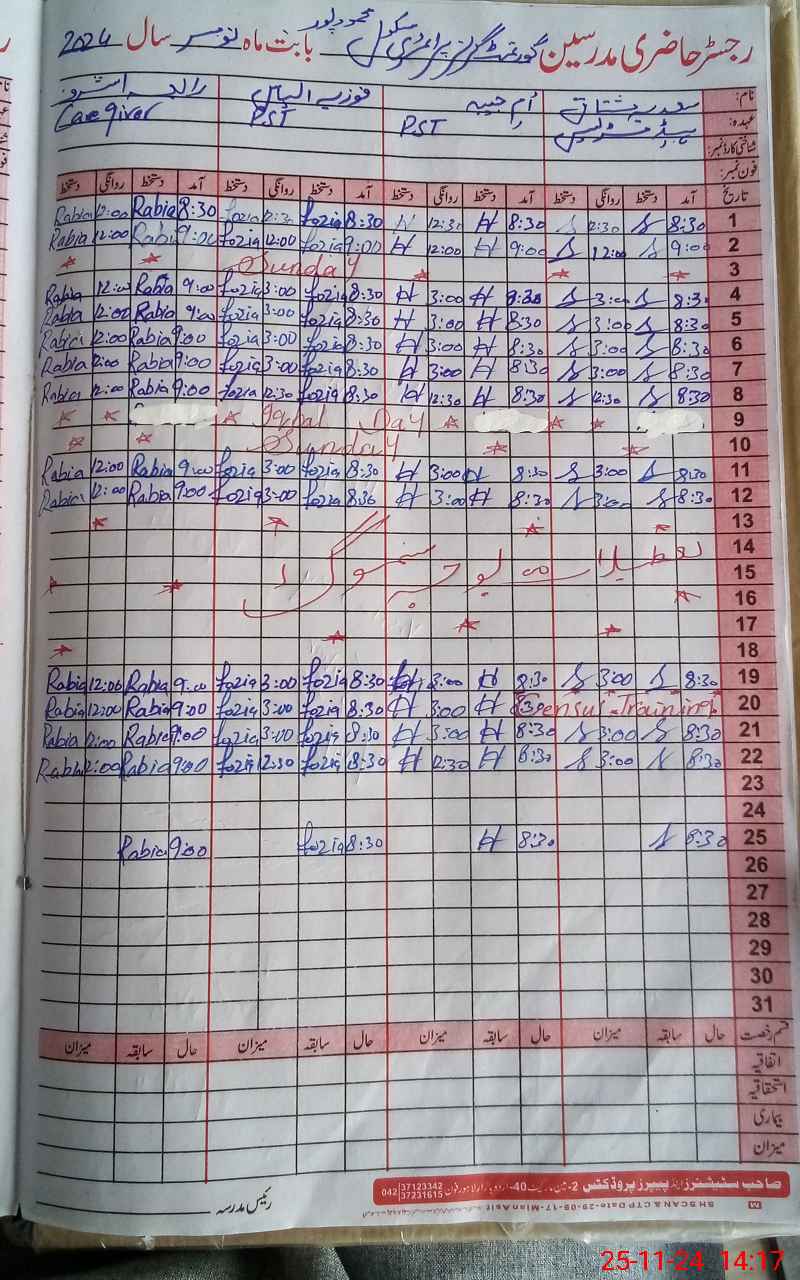 رجسٹر حاضری مدرسین گورنمنٹ گرلز پرائمری سکول محمود پور بابت ماہ نومبر سال 2024
نام: سعدیہ مشتاق اُم حبیبہ فوزیہ الیاس رابعہ
عہدہ: ہیڈ مسٹریس PST PST Care giver
شناختی کارڈ نمبر:
فون نمبر:
تاریخ آمد دستخط روانگی دستخط آمد دستخط روانگی دستخط آمد دستخط روانگی دستخط آمد دستخط روانگی دستخط
Rabia 12:00 Rabia 8:30 fozia 12:30 fozia 8:30 H 12:30 H 8:30 S 12:30 S 8:30 1
Rabia 12:00 Rabia 9:00 fozia 12:00 fozia 9:00 H 12:00 H 9:00 S 12:00 S 9:00 2
Sunday 3
Rabia 12:00 Rabia 9:00 fozia 3:00 fozia 8:30 H 3:00 H 8:30 S 3:00 S 8:30 4
Rabia 12:00 Rabia 9:00 fozia 3:00 fozia 8:30 H 3:00 H 8:30 S 3:00 S 8:30 5
Rabia 12:00 Rabia 9:00 fozia 3:00 fozia 8:30 H 3:00 H 8:30 S 3:00 S 8:30 6
Rabia 12:00 Rabia 9:00 fozia 3:00 fozia 8:30 H 3:00 H 8:30 S 3:00 S 8:30 7
Rabia 12:00 Rabia 9:00 fozia 12:30 fozia 8:30 H 12:30 H 8:30 S 12:30 S 8:30 8
Iqbal Day 9
Sunday 10
Rabia 12:00 Rabia 9:00 fozia 3:00 fozia 8:30 H 3:00 H 8:30 S 3:00 S 8:30 11
Rabia 12:00 Rabia 9:00 fozia 3:00 fozia 8:30 H 3:00 H 8:30 S 3:00 S 8:30 12
13
14
تعطیلات بوجہ سموگ 15
16
17
18
Rabia 12:00 Rabia 9:00 fozia 3:00 fozia 8:30 H 3:00 H 8:30 S 3:00 S 8:30 19
Rabia 12:00 Rabia 9:00 fozia 3:00 fozia 8:30 H 3:00 H 8:30 Training 20
Rabia 12:00 Rabia 9:00 fozia 3:00 fozia 8:30 H 3:00 H 8:30 S 3:00 S 8:30 21
Rabia 12:00 Rabia 9:00 fozia 12:30 fozia 8:30 H 12:30 H 8:30 S 3:00 S 8:30 22
23
24
Rabia 9:00 fozia 8:30 H 8:30 S 8:30 25
26
27
28
29
30
31
قسم رخصت حال سابقہ میزان حال سابقہ میزان حال سابقہ میزان حال سابقہ میزان
اتفاقیہ
استحقاقیہ
بیماری
میزان
صاحب سٹیشنرز اینڈ پیپرز پروڈکٹس 042 37123342 37231615
رئیس مدرسہ
25-11-24 14:17